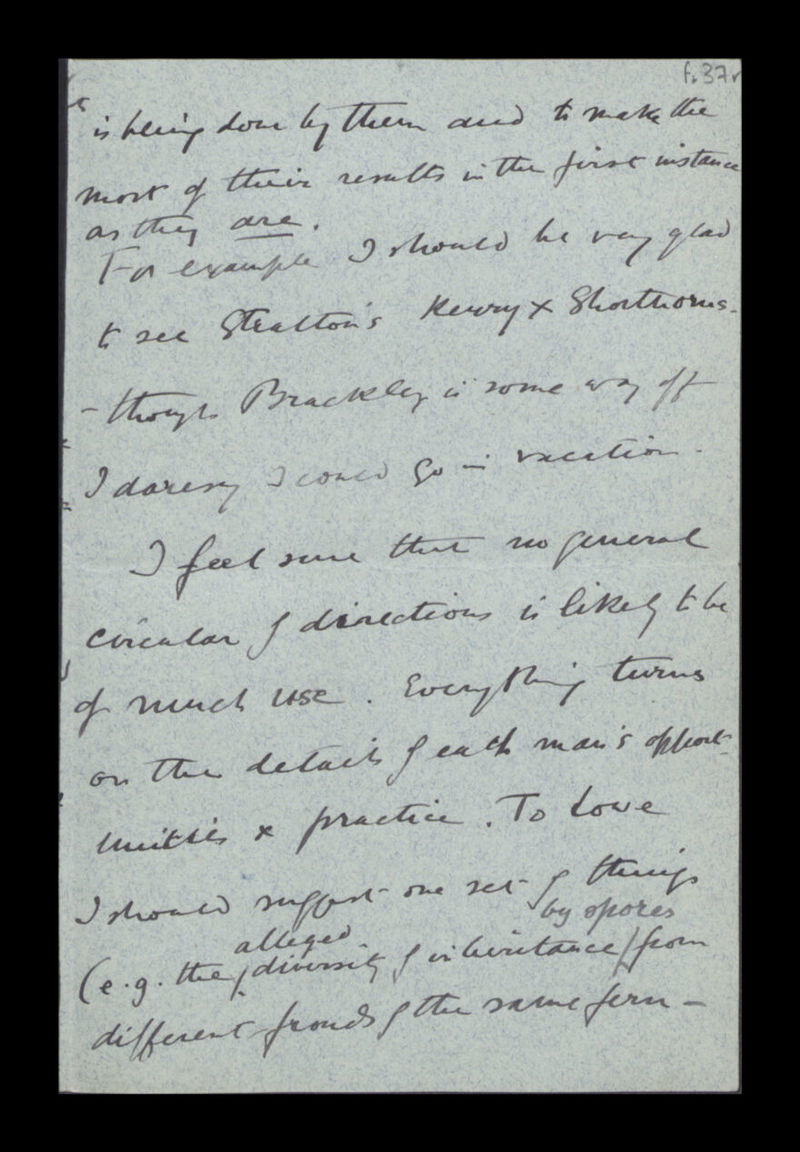 f. 37r
is being done by them and to make the
most of their results in the first instance
as they are.
For example I should be very glad
to see Stratton's Kerry x Shorthorns.
- though Brackley is some way off
I daresay I could go in vacation.
I feel sure that no general
circular of directions is likely to be
of much use. Everything turns
on the details of each man's opport-
unities & practice. To Lowe
I should suggest one set of things
by spores
alleged
(e.g. the diversity of inheritance from
different fronds of the same fern -